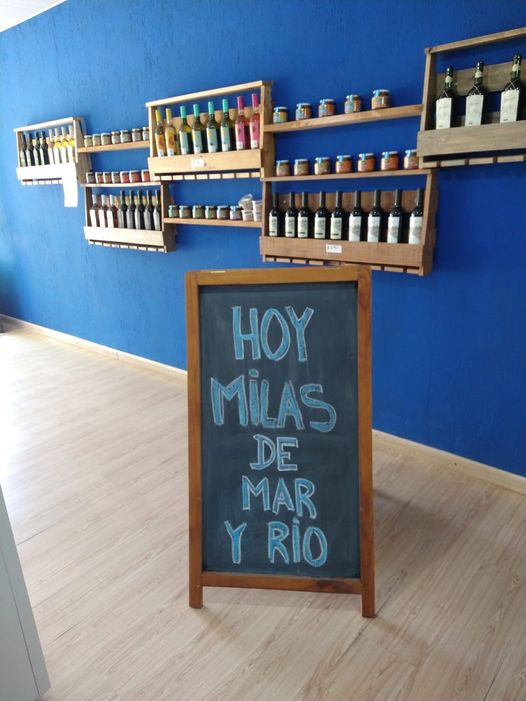 HOY
MILAS
DE
MAR
Y RIO